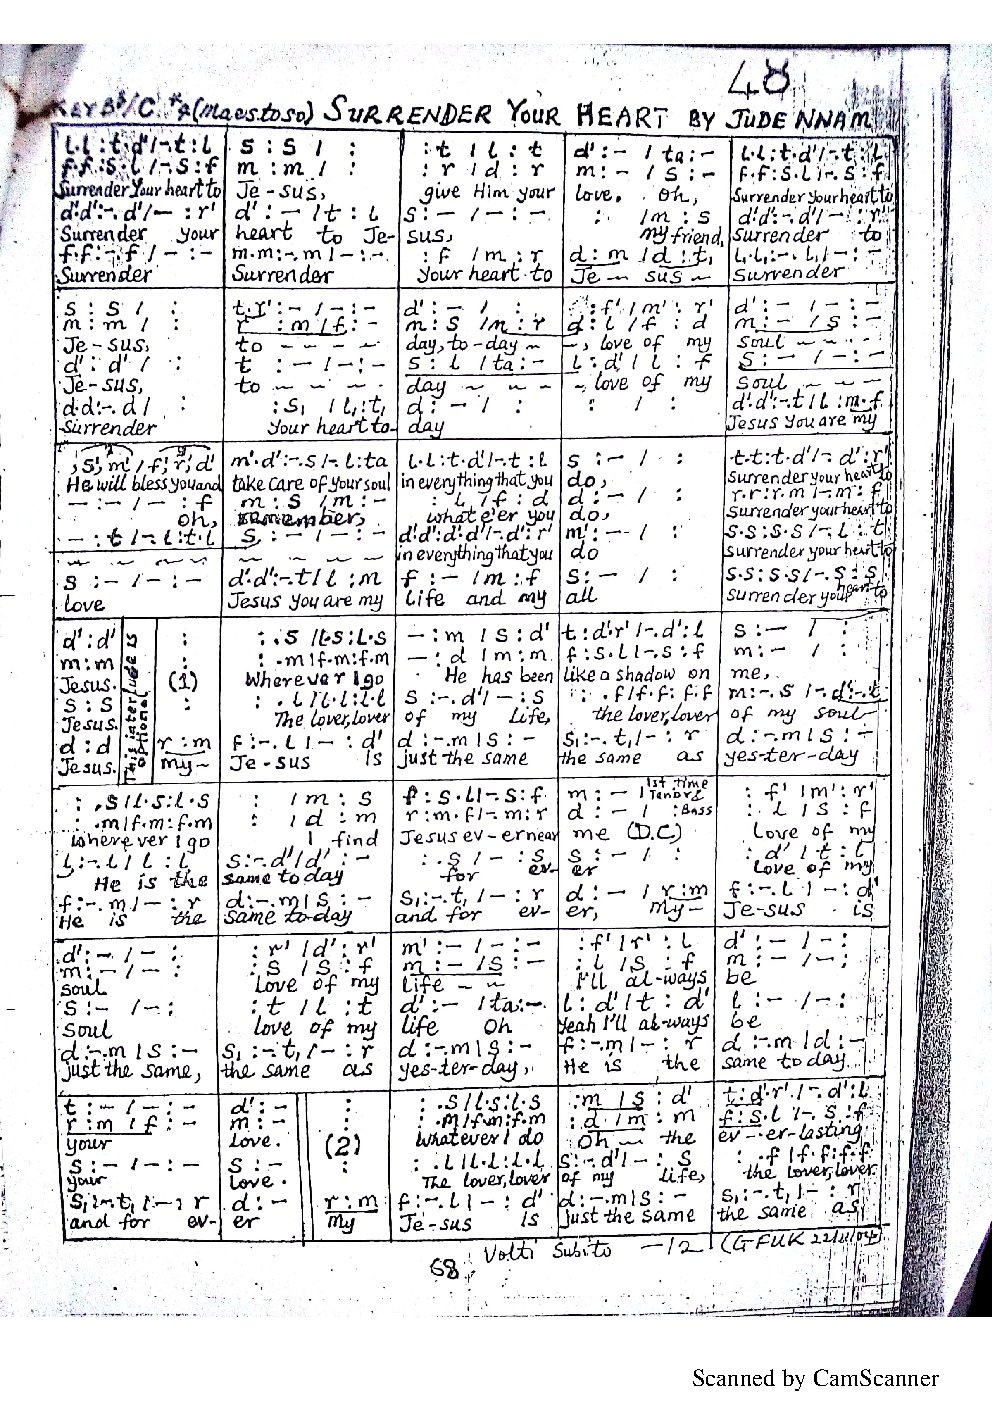 48
KEY Bb/C (Maestoso) SURRENDER YOUR HEART BY JUDE NNAM
l.l:t.d'/-.t:l | s:s/ : | :t/l:t | d':-/ta:- | l.l:t.d'/-.t:l
f.f:s.l/-.s:f | m:m/ : | :r/d:r | m:-/s:- | f.f:s.l/-.s:f
Surrender Your heart to | Je-sus, | give Him your | love. Oh, | Surrender your heart to
d'.d':-.d'/-:r' | d':-/t:l | s:-/-:- | : /m:s | d'.d':-.d'/-:r'
Surrender your | heart to Je- | sus, | my friend, | Surrender to
f.f:-.f/-:- | m.m:-.m/-:- | :f/m:r | d:m/d:t, | l,.l,:-.l,/-:-
Surrender | Surrender | Your heart to | Je-sus- | Surrender
s:s/ : | t.r':-/-:- | d':-/ : | :f'/m':r' | d':-/-:-
m:m/ : | r:m/f:- | m:s/m:r | d:l/f:d | m:-/s:-
Je-sus, | to - - - - | day, to-day - | -, love of my | soul - - -
d':d'/ : | t:-/-:- | s:l/ta:- | l:d'/l:f | s:-/-:-
Je-sus, | to - - - - | day - - - | - love of my | Soul - - -
d.d:-.d/ : | :s,/l,:t, | d:-/ : | : / : | d'.d':-.t/l:m.f
Surrender | Your heart to- | day | Jesus you are my
,s',m'/f',r',d' | m'.d':-.s/-.l:ta | l.l:t.d'/-.t:l | s:-/ : | t.t:t.d'/-.d':r'
He will bless you and | take care of your soul | in everything that you | do, | Surrender your heart to
-:-/-:f | m:s/m:- | l/f:d | d:-/ : | r.r:r.m/-.m:f
oh, | remember, | what e'er you | do, | Surrender your heart to
-:t/-.l:t.l | s:-/-:- | d'.d':d'.d'/-.d':r' | m':--/ : | s.s:s.s/-.l:t
in everything that you | do | surrender your heart to
s:-/-:- | d'.d':-.t/l:m | f:-/m:f | s:-/ : | s.s:s.s/-.s:s
love | Jesus you are my | life and my | all | surrender your heart to
d':d' | : | :.s/l.s:l.s | -:m/s:d' | t:d'.r'/-.d':l | s:-/ :
m:m | : | :.m/f.m:f.m | -:d/m:m | f:s.l/-.s:f | m:-/ :
Jesus. | This interlude is optional | (1) | Wherever I go | He has been | like a shadow on | me,
s:s | : | :.l/l.l:l.l | s:-.d'/-:s | :.f/f.f:f.f | m:-.s/-.d:-.t
Jesus. | The lover, lover | of my life, | the lover, lover | of my soul
d:d | r:m | f:-.l/-:d' | d:-.m/s:- | s,:-.t,/-:r | d:-.m/s:-
Jesus. | My- | Je-sus is | just the same | the same as | yes-ter-day
:.s/l.s:l.s | : /m:s | f:s.l/-.s:f | m:-/ 1st time Tenor & | :f'/m':r'
:.m/f.m:f.m | : /d:m | r:m.f/-.m:r | d:-/ : Bass | :l/s:f
wherever I go | I find | Jesus ev-er near | me (D.C) | Love of my
l:-.l/l:l | s:-.d'/d':- | :.s/-:s | s:-/ : | :d'/t:l
He is the | same today | for ev- | er | Love of my
f:-.m/-:r | d:-.m/s:- | s,:-.t,/-:r | d:-/r:m | f:-.l/-:d'
He is the | same to-day | and for ev- | er, My- | Je-sus is
d':-/-: | :r'/d':r' | m':-/-:- | :f'/r':l | d':-/-:
m:-/-: | :s/s:f | m:-/s:- | :l/s:f | m:-/-:
soul | Love of my | life - - | I'll al-ways | be
s:-/-: | :t/l:t | d':-/ta:-. | l:d'/t:d' | l:-/-:
soul | love of my | life Oh | Yeah I'll al-ways | be
d:-.m/s:- | s,:-.t,/-:r | d:-.m/s:- | f:-.m/-:r | d:-.m/d:-
just the same, | the same as | yes-ter-day, | He is the | same today.
t:-/-:- | d':- | : | :.s/l.s:l.s | :m/s:d' | t:d'.r'/-.d':l
r:m/f:- | m:- | : | :.m/f.m:f.m | :d/m:m | f:s.l/-.s:f
your | Love. | (2) | whatever I do | Oh - the | ev-er-lasting
s:-/-:- | s:- | : | :.l/l.l:l.l | s:-.d'/-:s | :.f/f.f:f.f
your | Love. | The lover, lover | of my life, | the lover, lover
s,:-.t,/-:r | d:- | r:m | f:-.l/-:d' | d:-.m/s:- | s,:-.t,/-:r
and for ev- | er | My | Je-sus is | just the same | the same as
68 Volti Subito -/2 (GFUK 22/11/04)
Scanned by CamScanner